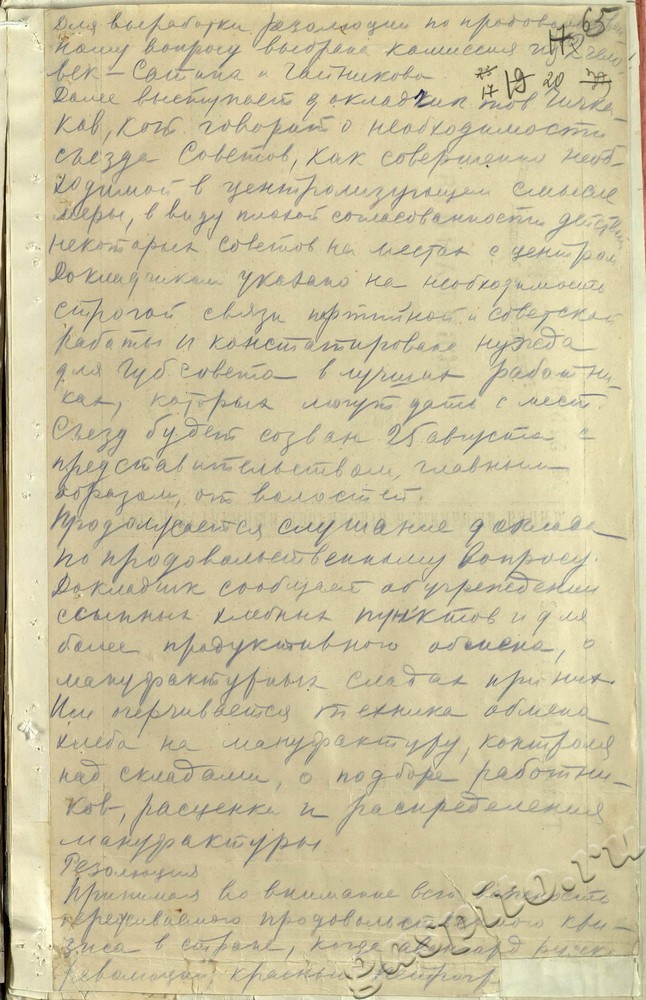 65
Для выработки резолюции по продовольствен-
ному вопросу выбрана комиссия из 2 чело-
век — и
19 20
17
Далее выступает докладчик тов
ков, кот. говорит о необходимости
съезда Советов, как совершенно необ-
ходимой в централизующем смысле
меры, в виду плохой согласованности действий
некоторых советов на местах с центром
Докладчиком указано на необходимость
строгой связи партийной и советской
работы и констатирована нужда
для Губ. совета в лучших работни-
ках, которых могут дать с мест.
Съезд будет созван 25 августа с
представительством, главным
образом, от волостей.
Продолжается слушание доклада
по продовольственному вопросу.
Докладчик сообщает об учреждении
ссыпных хлебных пунктов и для
более продуктивного обмена, о
мануфактурных складах при них.
Им очерчивается техника обмена
хлеба на мануфактуру, контроля
над складами, о подборе работни-
ков, расценки и распределения
мануфактуры
Резолюция
Принимая во внимание всю важность
переживаемого продовольственного кри-
зиса в стране, когда авангард русской
революции красный Петрогр